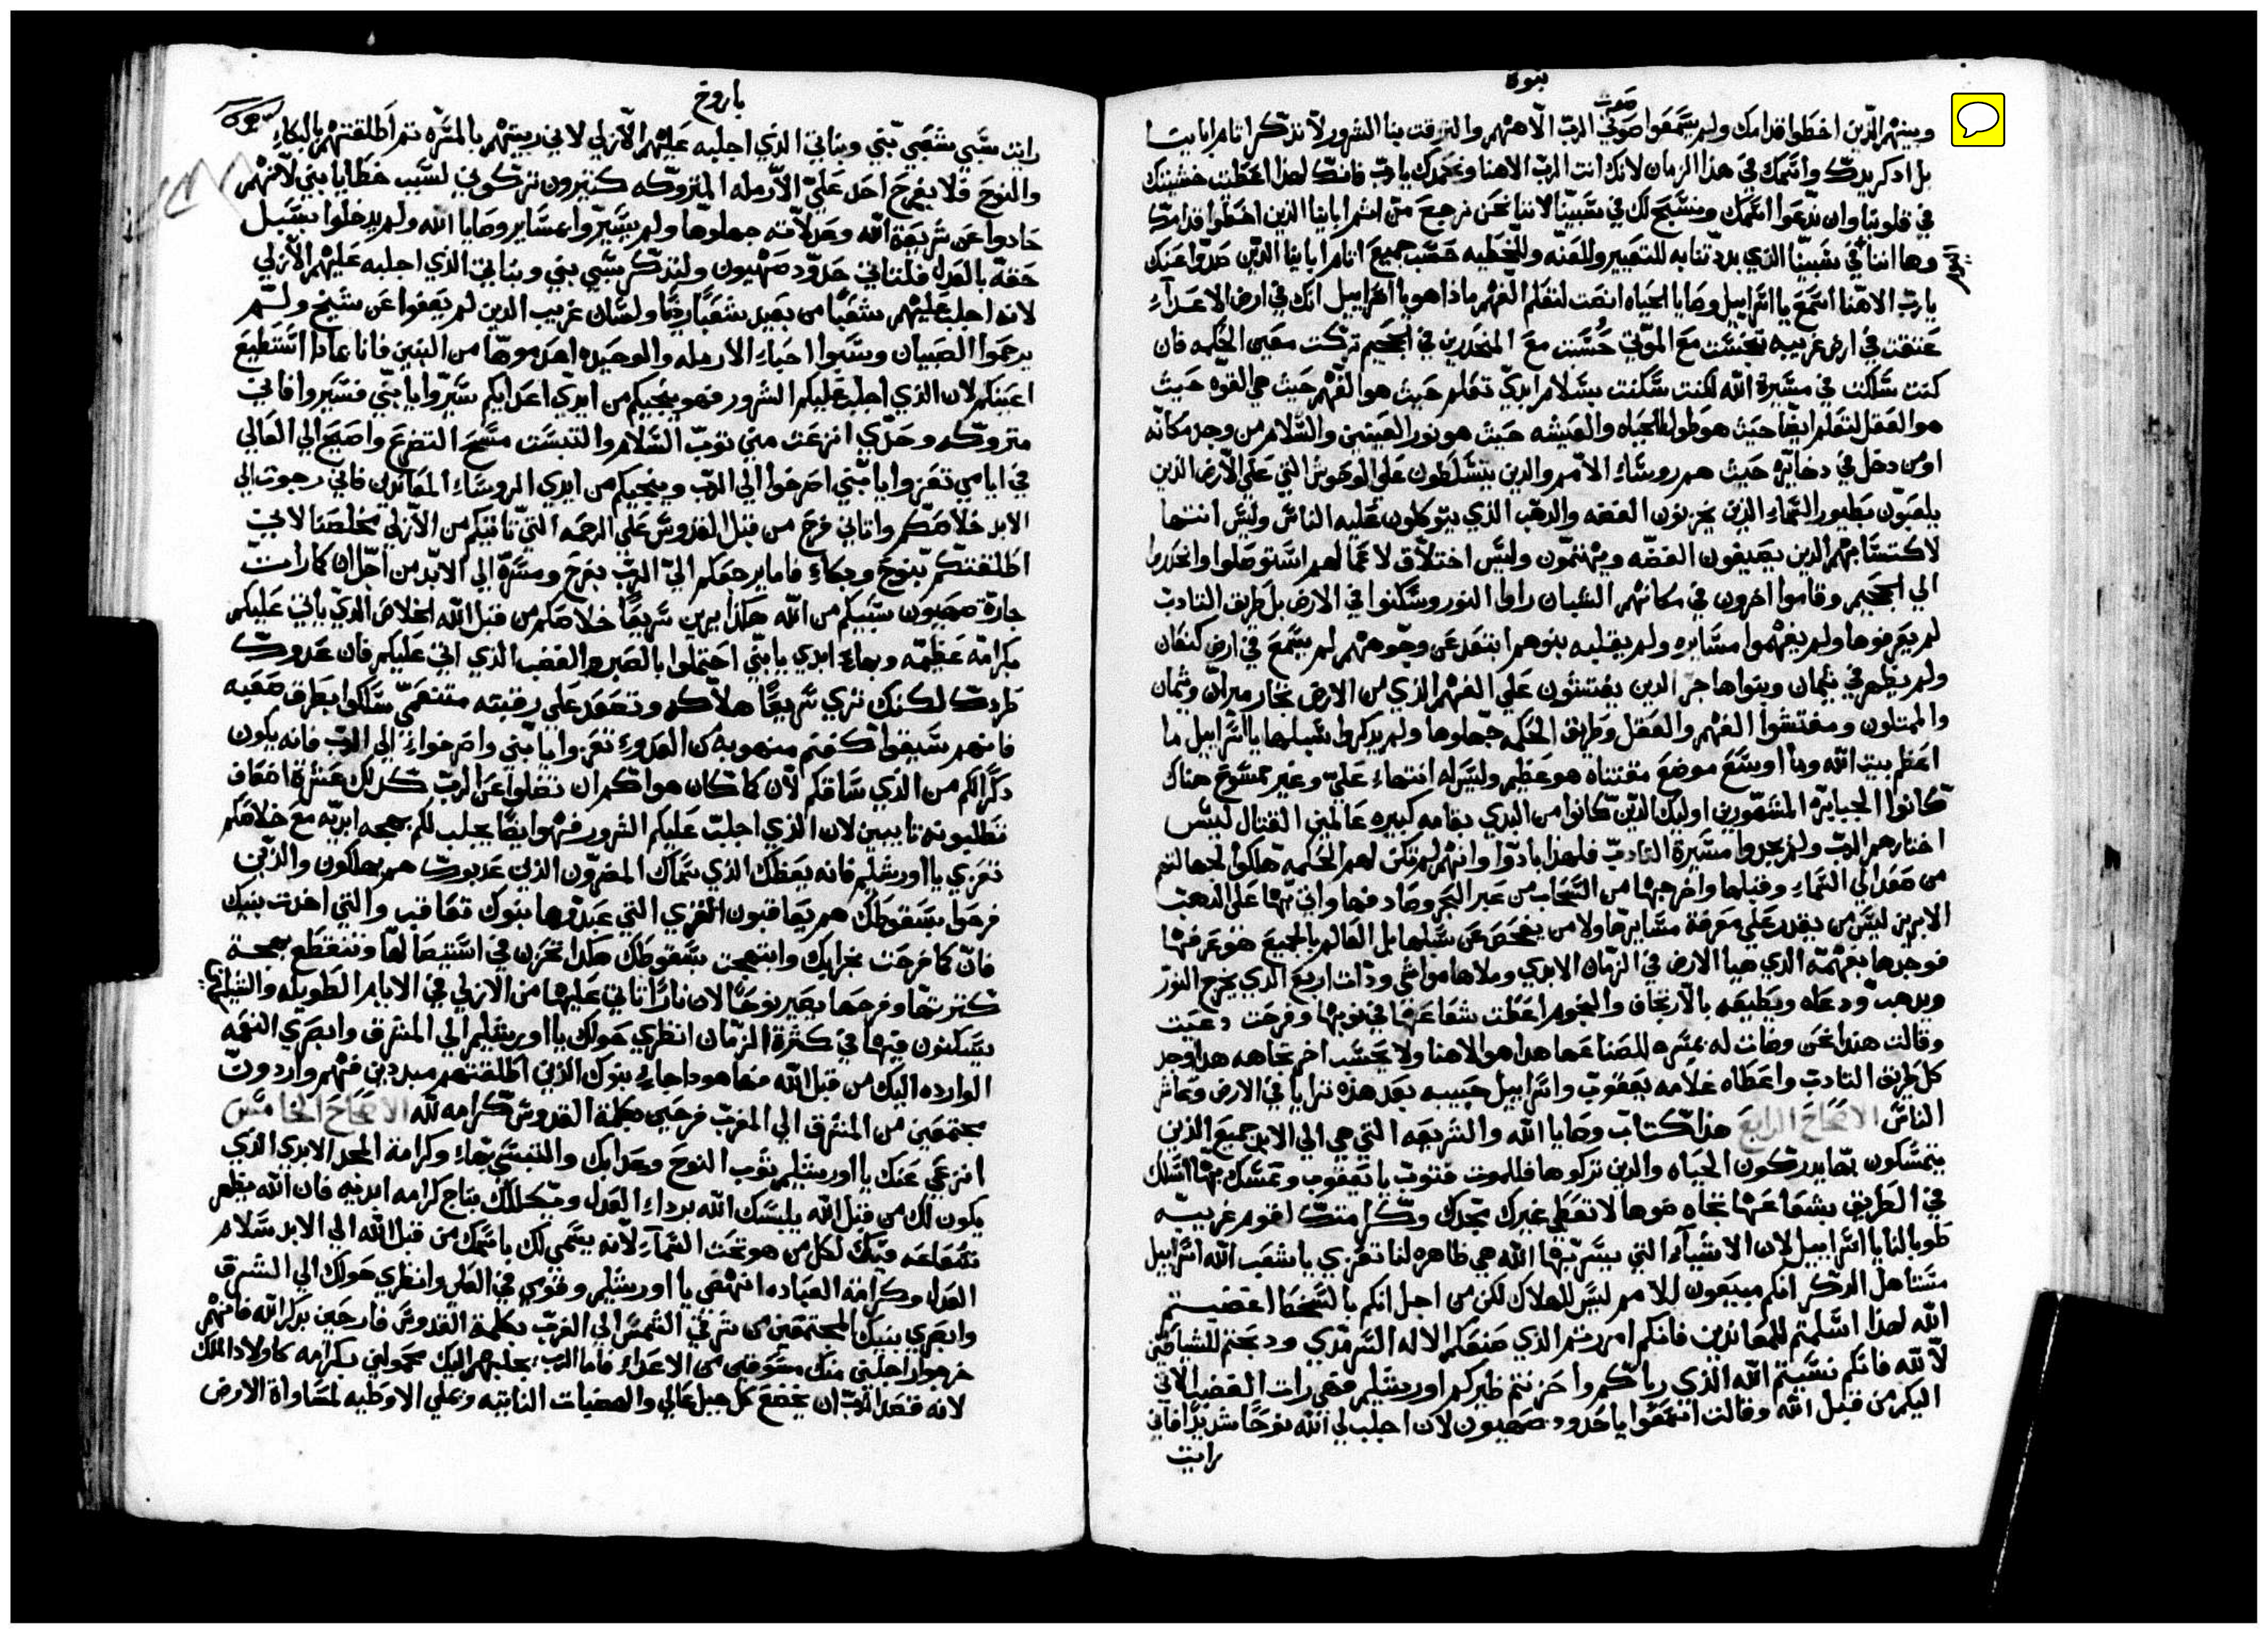 نبوة
وبينهم الذين اخطوا قدامك ولم يسمعوا صوتي صوت الرب الاههم والتزقت بنا الشرور لا تذكر اتام ابايـنا
بل اذكر يدك واسمك في هذا الزمان لانك انت الرب الاهنا ونحمدك يا رب فانك لهذا اعطيت خشيتك
في قلوبنا وان ندعوا اسمك ونسبح لك في سبينا لاننا نحن نرجع من اثم اباينا الذين اخطوا قدامك
وها اننا في سبينا الذي بددتنا به للتعيير وللعنه وللخطيه حسب جميع اتام اباينا الذين صدوا عنك
يا رب الاهنا اسمع يا اسراييل وصايا الحياه انصت لتعلم الفهم ماذا هو يا اسراييل انك في ارض الاعداء
عتقت في ارض غريبه تنجست مع الموتي حسبت مع المنحدرين في الجحيم تركت معين الحكمه فان
كنت سلكت في مسيرة الله لكنت سكنت بسلام ابدي تعلم حيث هو الفهم حيث هي القوه حيث
هو العقل لتعلم ايضا حيث هو طول الحياه والعيشه حيث هو نور العينين والسلام من وجد مكانه
او من دخل في دخايره حيث هم روساء الامم والدين يتسلطون علي الوحوش التي علي الارض الذين
يلعبون بطيور السماء الذين يخزنون الفضه والدهب الذي يتوكلون عليه الناس وليس انتها
لاكتسابهم الدين يصيغون الفضه ويهتمون وليس اختلاق لاعمالهم استوصلوا وانحدروا
الي الجحيم وقاموا اخرون في مكانهم الشبان راوا النور وسكنوا في الارض بل طريق التادب
لم يعرفوها ولم يفهموا مسايره ولم يقبله بنوهم ابتعد عن وجوههم لم يسمع في ارض كنعان
ولم يظهر في تيمان وبنوا هاجر الدين يفتشون علي الفهم الذي من الارض تجار ميران وتيمان
والممتلون ومفتشوا الفهم والعقل وطريق الحكمه جهلوها ولم يدكروا سبلها يا اسراييل ما
اعظم بيت الله وما اوسع موضع مقتناه هو عظيم وليس له انتهاء علي وغير ممسوح هناك
كانوا الجبابره المشهورين اوليك الدين كانوا من البدي بقامه كبيره عالمين القتال ليس
اختارهم الرب ولم يجدوا مسيرة التادب فلهذا بادوا وانهم لم تكن لهم الحكمه هلكوا لجهالتهم
من صعد الي السماء وقبلها واخرجها من السحاب من عبر البحر وصادفها واتي بها علي الذهب
الابريز ليس من يقدر علي معرفة مسايرها ولا من يفحص عن سبلها بل العالم بالجميع هو عرفها
فوجدها بفهمه الدي هيا الارض في الزمان الابدي وملاها مواشي ودات اربع الدي يخرج النور
ويدهب ودعاه ويطيعه بالارتجاف والنجوم اعطت شعاعها في نوبها وفرحت دعيت
وقالت هندا نحن وضات له بمسره للصانعها هدا هو الاهنا ولا يحسب اخر تجاهه هدا وجد
كل طريق التادب واعطاه غلامه يعقوب واسراييل حبيبه بعد هذه ترايا في الارض وعاش
الناس الاصحاح الرابع هذا كتاب وصايا الله والشريعه التي هي الي الابد جميع الذين
يتمسكون بها يدركون الحياه والدين تركوها فللموت فتوب يا يعقوب وتمسك بها اسلك
في الطريق بشعاعها تجاه ضوها لا تعطي غيرك مجدك وكرامتك لقوم غريبه
طوبا لنا يا اسراييل لان الاشياء التي يسر بها الله هي ظاهره لنا تعزي يا شعب الله اسراييل
مستاهل الدكر انكم مبيعون للامم ليس للهلاك لكن من اجل انكم بالسخط اغضبتم
الله لهذا اسلمتم للمعاندين فانكم امررتم الذي صنعكم الاله السرمدي ودبحتم للشياطين
لا لله فانكم نسيتم الله الذي رباكم واحزنتم ظيركم اورشليم فهي رات الغضب الاتي
اليكم من قبل الله وقالت اسمعوا يا حدود صهيون لان اجلب لي الله نوحا شديدا فاني
رايت
باروخ
رايت سبي شعبي بني وبناتي الذي اجلبه عليهم الازلي لاني ربيتهم بالمسره تم اطلقتهم بالبكاء
والنوح فلا يفرح احد علي الارمله المتروكه كتيرون تركوني لسبب خطايا بني لانهم
حادوا عن شريعة الله وعدلاته جهلوها ولم يسيروا بمساير وصايا الله ولم يدخلوا بسبل
حقه بالعدل فلتاتي حدود صهيون ولتدكر سبي بني وبناتي الذي اجلبه عليهم الازلي
لانه اجلب عليهم شعبا من بعيد شعبا رديا ولسان غريب الدين لم يعفوا عن شيخ ولم
يرحموا الصبيان وسبوا احباء الارمله والوحيده اعدموها من البنين فانا بمادا استطيع
اعينكم لان الذي اجلب عليكم الشرور فهو ينجيكم من ايدي اعدايكم سيروا يا بني فسيروا فاني
متروكه وحدي انزعت مني توب السلام والتبست مسح التضرع واصيح الي العالي
في ايامي تعزوا يا بني اصرخوا الي الرب وينجيكم من ايدي الروساء المعاندين فاني رجوت الي
الابد خلاصكم واتاني فرح من قبل القدوس علي الرحمه التي تاتيكم من الازلي مخلصنا لاني
اطلقتكم بنوح وبكاء فاما يرجعكم الي الرب بفرح ومسرة الي الابد من اجل ان كما رات
جارة صهيون سبيكم من الله هكذا يرين سريعا خلاصكم من قبل الله الخلاص الدي ياتي عليكم
بكرامه عظيمه وبهاء ابدي يا بني احتملوا بالصبر الغضب الذي اتي عليكم فان عدوك
طردك لكنك تري سريعا هلاكه وتصعد علي رقبته متنعمي سلكوا بطرق صعبه
فانهم سيقوا كغنم منهوبه من العدو تعزوا يا بني واصرخوا الي الرب فانه يكون
دكرا لكم من الذي ساقكم لان كما كان هواكم ان تضلوا عن الرب كدلك عشرة اضعاف
تطلبونه تايبين لان الذي اجلب عليكم الشرور فهو ايضا يجلب لكم بهجه ابديه مع خلاصكم
تعزي يا اورشليم فانه يعظك الذي سماك المضرون الذين عدبوك هم يهلكون والذين
فرحوا بسقوطك هم يعاقبون القري التي عبدوها بنوك تعاقب والتي اخدت بنيك
فان كما فرحت بخرابك وابتهجت بسقوطك هكدا تحزن في استيصالها وتنقطع بهجة
كترتها وفرحها يصير نوحا لان نارا تاتي عليها من الازلي في الايام الطويله والشياطين
يسكنون فيها في كثرة الزمان انظري حولك يا اورشليم الي المشرق وابصري النعمه
الوارده اليك من قبل الله فها هودا جاء بنوك الذين اطلقتهم مبددين فهم واردون
مجتمعين من المشرق الي المغرب فرحين بكلمة القدوس كرامه لله الاصحاح الخامس
انزعي عنك يا اورشليم توب النوح وعدابك والتبسي بهاء وكرامة المجد الابدي الذي
يكون لك من قبل الله يلبسك الله برداء العدل ويكللك بتاج كرامه ابديه فان الله يظهر
شعاعه فيك لكل من هو تحت السماء لانه يسمي لك باسمك من قبل الله الي الابد سلام
العدل وكرامة العباده انهضي يا اورشليم وقومي في العلي وانظري حولك الي الشرق
وابصري بنيك المجتمعين من شرق الشمس الي الغرب بكلمة القدوس فارحين بدكر الله فانهم
خرجوا راجلين منك مسوقين من الاعداء فاما الرب يجلبهم اليك محمولين بكرامه كاولاد الملك
لانه قصد الرب ان يخضع كل جبل عالي والهضبات الثابته وتملي الاوطيه لمساواة الارض